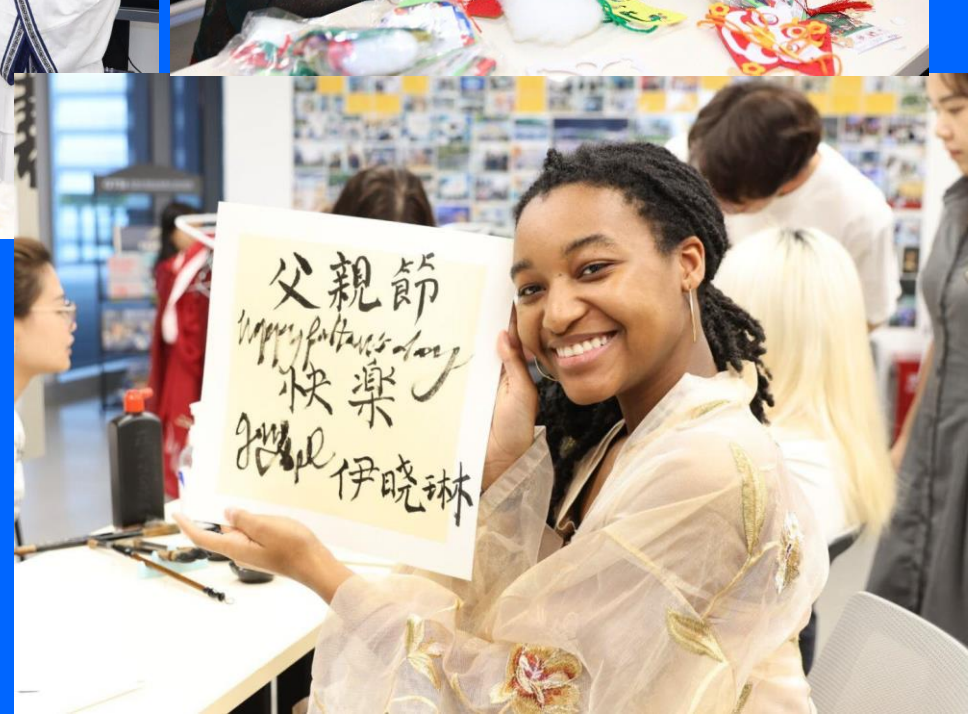 父親節
happy father's day
快楽
伊晓琳